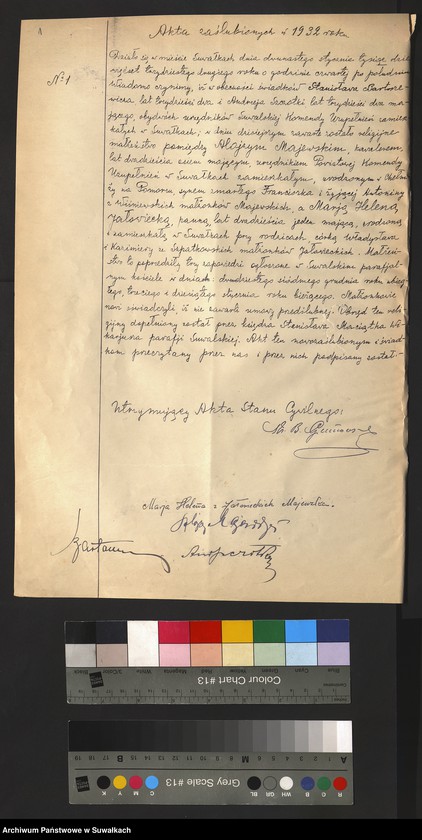 Akta zaślubionych w 1932 roku
№1
Działo się w mieście Suwałkach dnia dwunastego stycznia tysiąc dzie
więćset trzydziestego drugiego roku o godzinie czwartej po południu
Wiadomo czynimy, iż w obecności świadków Stanisława
lat trzydzieści dwa i Andrzeja lat trzydzieści dwa ma
jącego, obydwóch urzędników Suwalskiej Komendy Uzupełnień zamiesz
kałych w Suwałkach; w dniu dzisiejszym zawarte zostało religijne
małżeństwo pomiędzy Alojzym Majewskim, kawalerem,
lat dwadzieścia osiem mającym urzędnikiem Powiatowej Komendy
Uzupełnień w Suwałkach zamieszkałym, urodzonym w
na Pomorzu synem zmarłego Franciszka i żyjącej Antoniny
z Wiśniewskich małżonków Majewskich, a Marją Heleną
panną, lat dwadzieścia jeden mającą, urodzoną
i zamieszkałą w Suwałkach przy rodzicach córką Władysława
i Kazimiery ze małżonków. Małżeń-
stwo to poprzedziły trzy zapowiedzi ogłoszone w Suwalskim parafjal-
nym kościele w dniach dwudziestego siódmego grudnia roku
trzeciego i dziesiątego stycznia roku bieżącego. Małżonkowie
nowi oświadczyli, iż nie zawarli umowy przedślubnej. Obrzęd ten reli-
gijny dopełniony został przez księdza Stanisława Wi-
karjusza parafji Suwalskiej. Akt ten nowozaślubionym i świad-
kom przeczytany przez nas i przez nich podpisany został.-
Utrzymujący Akta Stanu Cywilnego:
Ks. B.
Marja Helena z Majewska.
Alojzy Majewski
Colour Chart #13
Blue
Cyan
Green
Yellow
Red
Magenta
White
3/Color
Black
Grey Scale #13
A 1 2 3 4 5 6 M 8 9 10 11 12 13 14 15 B 17 18 19
R G B WH GR BL C M Y K
Archiwum Państwowe w Suwałkach